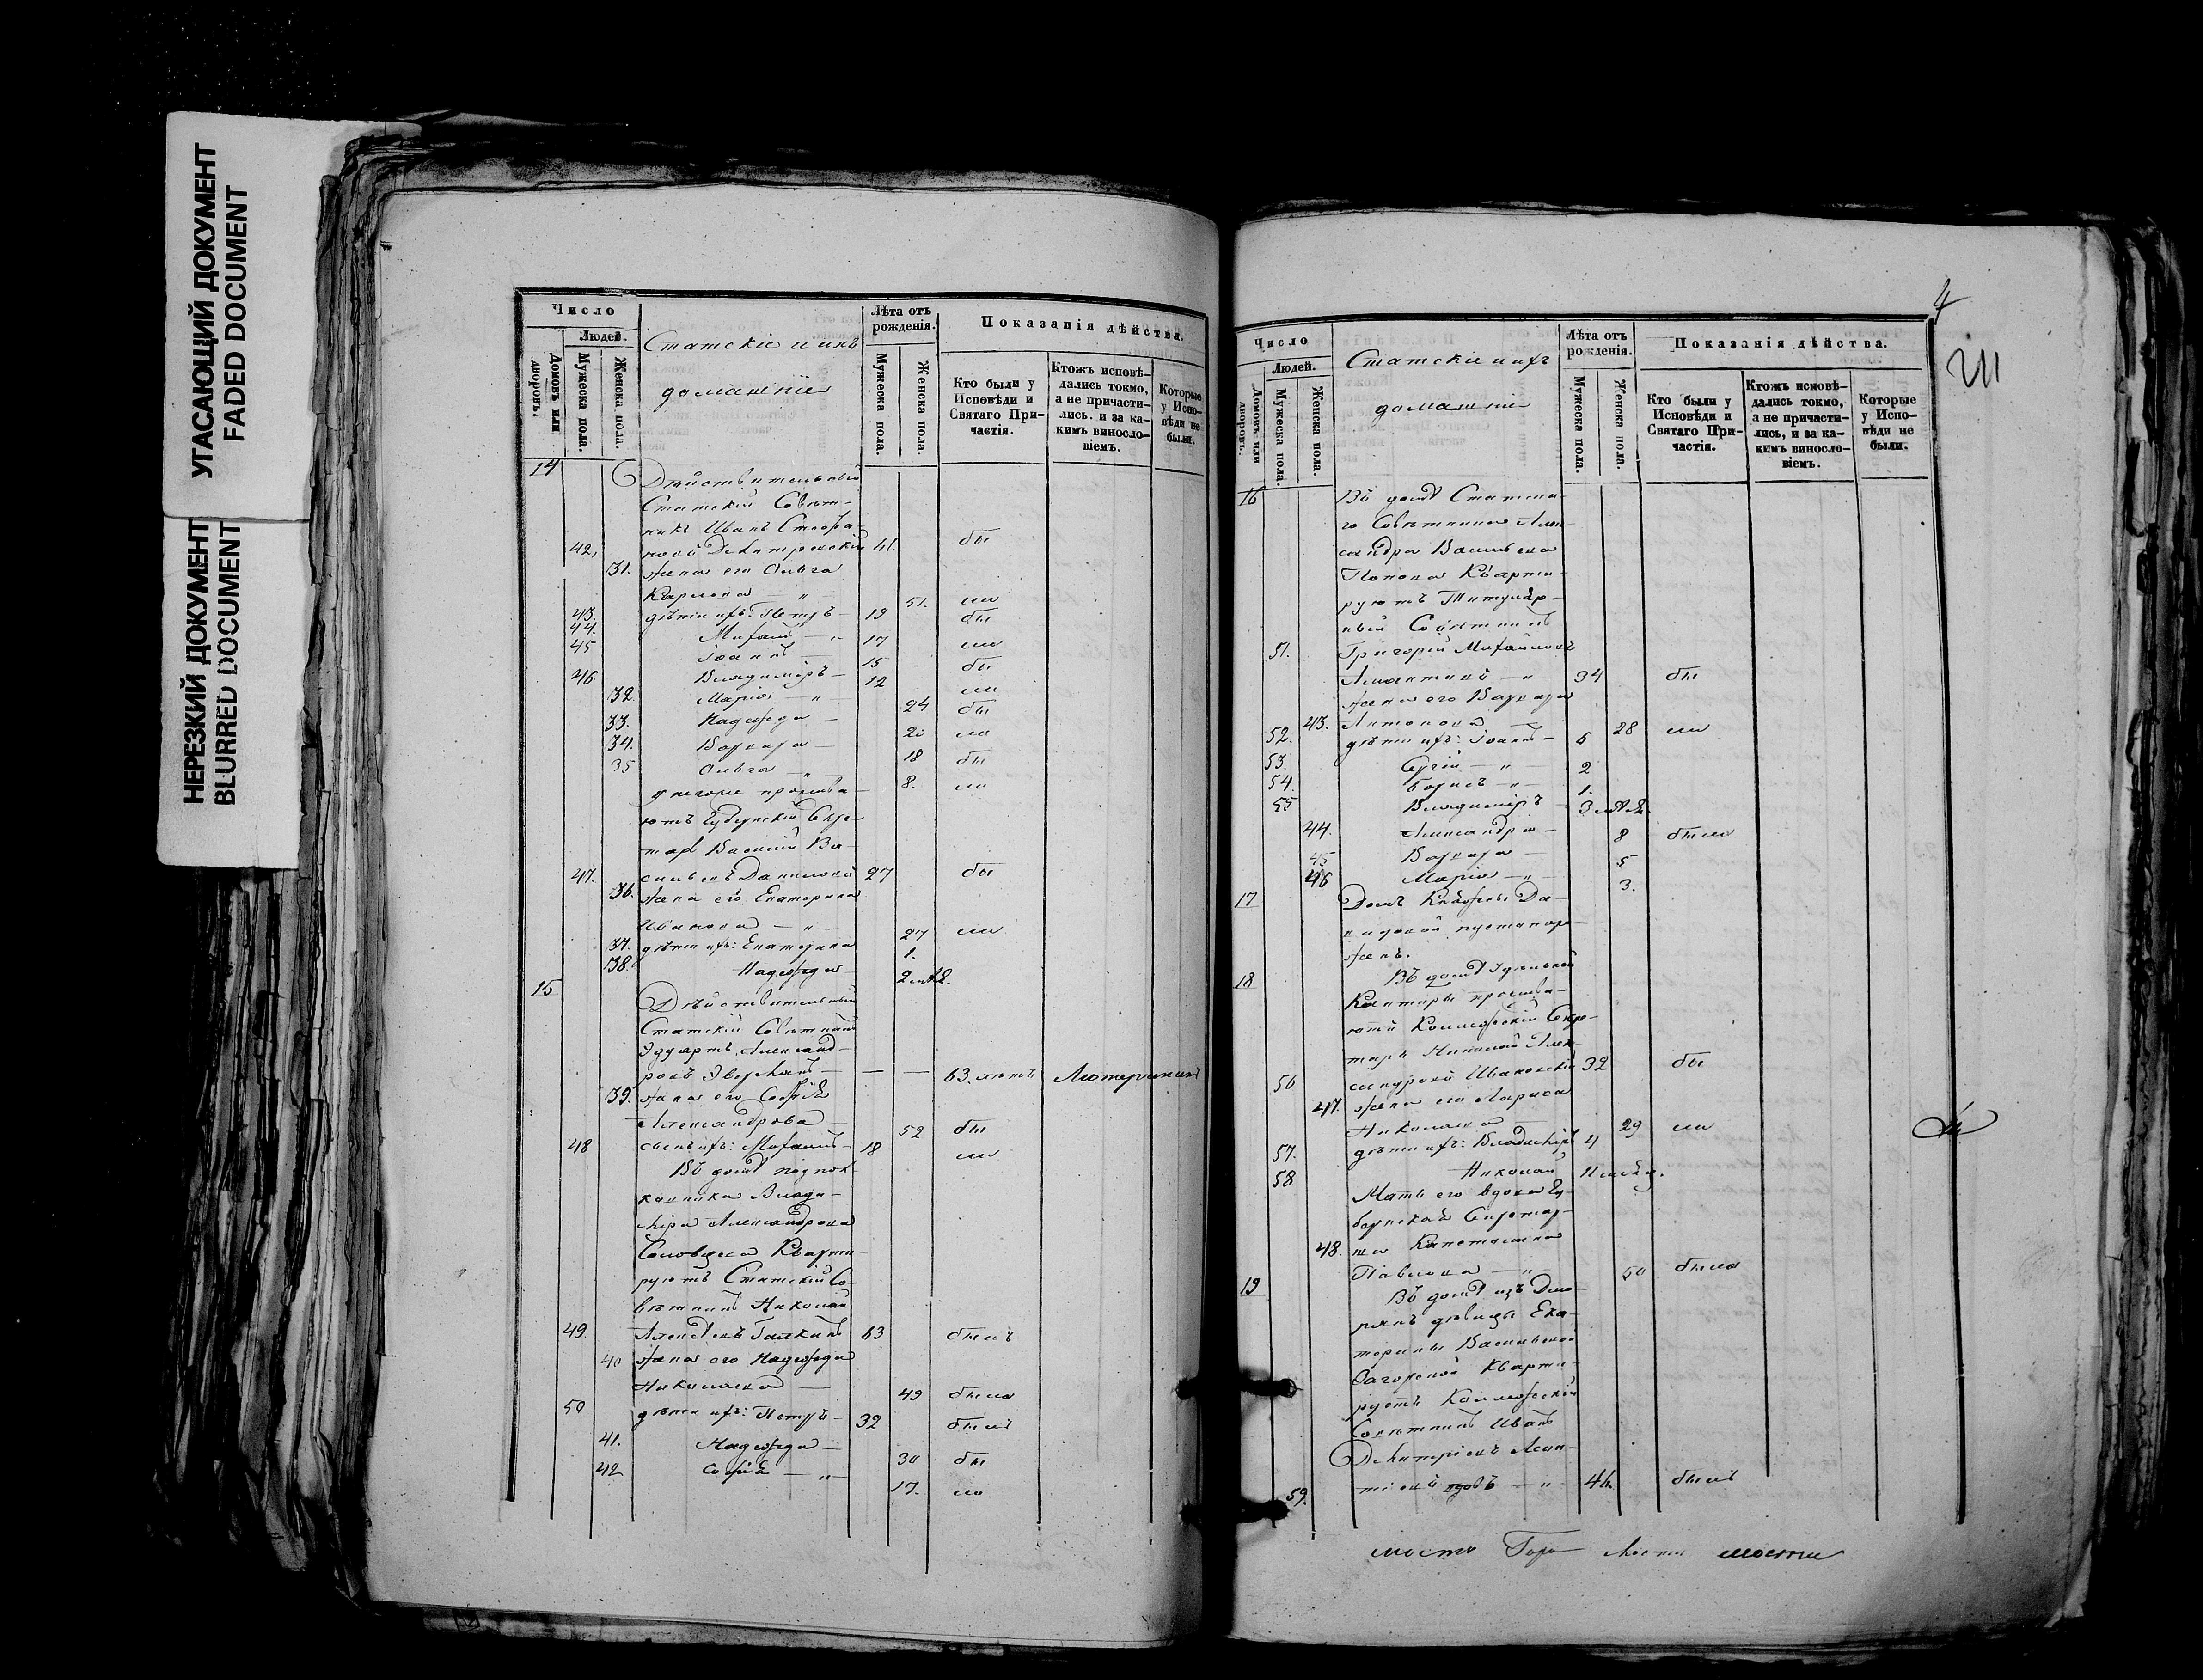 УГАСАЮЩИЙ ДОКУМЕНТ
FADED DOCUMENT
НЕРЕЗКИЙ ДОКУМЕНТ
BLURRED DOCUMENT
Число
Людей.
Домовъ или дворовъ.
Мужеска пола.
Женска пола.
Статскіе и ихъ
домашніе
Лѣта отъ рожденія.
Мужеска пола.
Женска пола.
Показанія дѣйства.
Кто были у Исповѣди и Святаго Причастія.
Ктожъ исповѣдались токмо, а не причастились. и за какимъ винословіемъ.
Которые у Исповѣди не были.
14 Дѣйствительный
Статскій Совѣт-
никъ Иванъ Стефа-
42, 61. бы
31. жена его Ольга
Карлова — " 51. ла
43. дѣти ихъ: Петръ — 19 бы
44. Михаилъ — " 17 ла
45 Іоаннъ — 15 бы
46 Владиміръ — 12 ла
32. Марія — " 24 бы
33. Надежда — 20 ла
34. Варвара — 18 бы
35 Ольга — " 8. ла
у него же прожива-
ютъ Губернскій Секре-
тарь Василій Ва-
47. сильевъ Даниловъ 27 бы
36. жена его Екатерина
Иванова — " — 27 ла
37. дѣти ихъ: Екатерина 1.
38. Надежда 2 мѣс.
15 Дѣйствительный
Статскій Совѣтникъ
Эдуартъ Александ-
ровъ — — 63. лѣтъ Лютеранинъ
39. жена его Софія
Александрова — 52 бы
48 сынъ ихъ: Михаилъ — 18 ла
Въ домѣ подпол-
ковника Влади-
міра Александрова
Соловьева Кварти-
руютъ Статскій Со-
вѣтникъ Николай
49. Алексѣевъ Галкинъ 63 былъ
40 жена его Надежда
Николаева — 49 была
50 дѣти ихъ: Петръ — 32 былъ
41. Надежда — 30 бы
42 Софія — " 17. ла
4
211
Число
Людей.
Домовъ или дворовъ.
Мужеска пола.
Женска пола.
Статскіе и ихъ
домашніе
Лѣта отъ рожденія.
Мужеска пола.
Женска пола.
Показанія дѣйства.
Кто были у Исповѣди и Святаго Причастія.
Ктожъ исповѣдались токмо, а не причастились, и за какимъ винословіемъ.
Которые у Исповѣди не были.
16 Въ домѣ Статска-
го Совѣтника Алек-
сандра Васильева
Попова Кварти-
руютъ Титуляр-
ный Совѣтникъ
51. Григорій Михайловъ
— " 34 бы
жена его Варвара
43. Антонова — 28 ла
52. дѣти ихъ: Іоаннъ — 6
53. Сергій — " — 2
54. Борисъ — " — 1.
55 Владиміръ 3 мѣс.
44. Александра — 8 была
45 Варвара — 5
46 Марія — " — 3.
17 Домъ
пустопоро-
женъ.
18 Въ домѣ Удѣльной
Конторы прожива-
ютъ Коллежскій Секре-
тарь Николай Алек-
56 сандровъ Ивановскій 32 бы
47. жена его Лариса
Николаева — 29 ла
57. дѣти ихъ: Владиміръ 4
58 Николай 11 мѣс.
Мать его вдова Гу-
бернская Секретар-
48. ша Капитолина
Павлова — " 50 была
19 Въ домѣ изъ Дво-
рянъ дѣвицы Ека-
терины Васильевой
Загорской Кварти-
руетъ Коллежскій
Совѣтникъ Иванъ
59. вдовъ — " 46. былъ